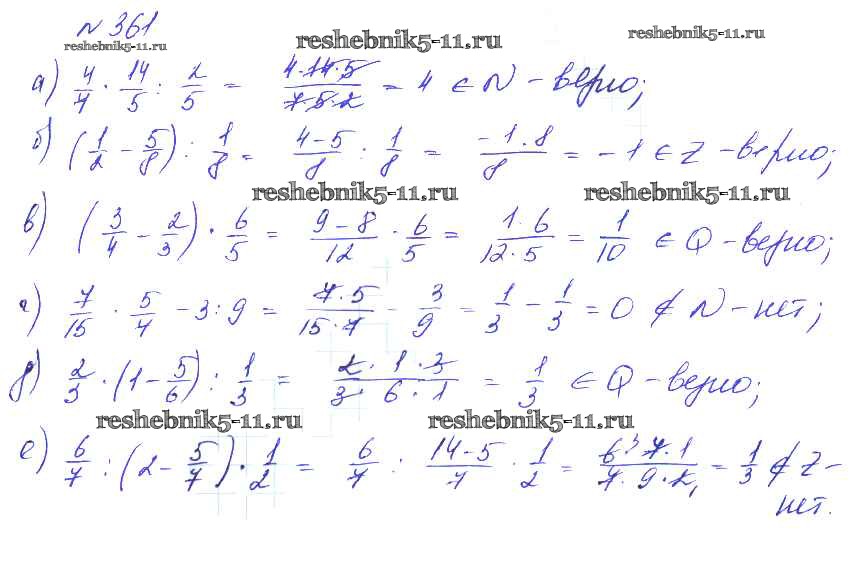 N 361
reshebnik5-11.ru
reshebnik5-11.ru
reshebnik5-11.ru
а) 4/7 · 14/5 : 2/5 = 4·14·5/7·5·2 = 4 ∈ N - верно;
б) (1/2 - 5/8) : 1/8 = 4-5/8 : 1/8 = -1·8/8 = -1 ∈ Z - верно;
reshebnik5-11.ru
reshebnik5-11.ru
в) (3/4 - 2/3) · 6/5 = 9-8/12 · 6/5 = 1·6/12·5 = 1/10 ∈ Q - верно;
г) 7/15 · 5/7 - 3:9 = 7·5/15·7 - 3/9 = 1/3 - 1/3 = 0 ∉ N - нет;
д) 2/3 · (1 - 5/6) : 1/3 = 2·1·3/3·6·1 = 1/3 ∈ Q - верно;
reshebnik5-11.ru
reshebnik5-11.ru
е) 6/7 : (2 - 5/7) · 1/2 = 6/7 : 14-5/7 · 1/2 = 6³·7·1/7·9·2₁ = 1/3 ∉ Z -
нет.